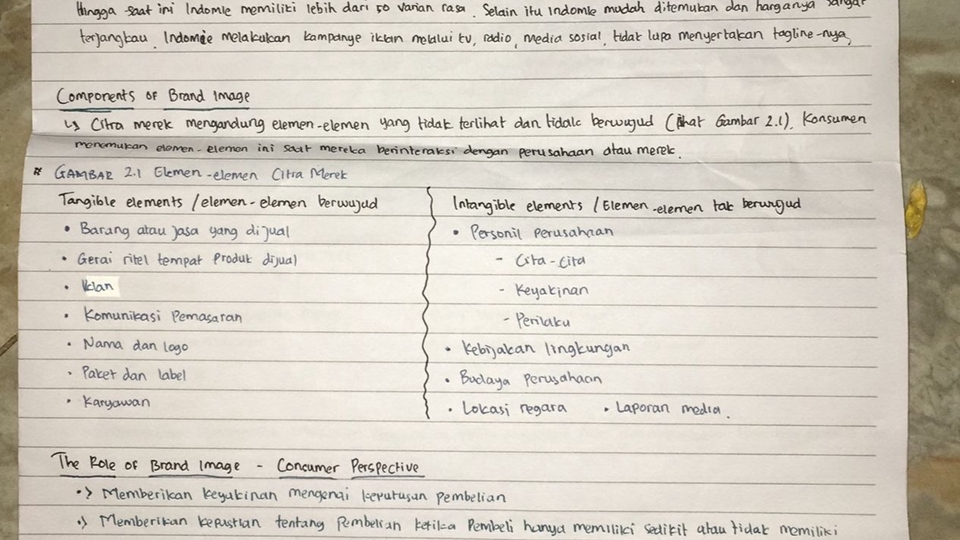 Hingga saat ini Indomie memiliki lebih dari 50 varian rasa. Selain itu Indomie mudah ditemukan dan harganya sangat
terjangkau. Indomie melakukan kampanye iklan melalui tv, radio, media sosial, tidak lupa menyertakan tagline-nya,
Components of Brand Image
↳ Citra merek mengandung elemen-elemen yang tidak terlihat dan tidak berwujud (lihat Gambar 2.1). Konsumen
menemukan elemen-elemen ini saat mereka berinteraksi dengan perusahaan atau merek.
* GAMBAR 2.1 Elemen-elemen Citra Merek
Tangible elements / elemen-elemen berwujud
• Barang atau jasa yang dijual
• Gerai ritel tempat produk dijual
• Iklan
• Komunikasi Pemasaran
• Nama dan logo
• Paket dan label
• Karyawan
Intangible elements / Elemen-elemen tak berwujud
• Personil Perusahaan
- Cita-cita
- Keyakinan
- Perilaku
• Kebijakan lingkungan
• Budaya Perusahaan
• Lokasi negara • Laporan media.
The Role of Brand Image - Concumer Perspective
•> Memberikan keyakinan mengenai keputusan pembelian
•> Memberikan kepastian tentang pembelian ketika Pembeli hanya memiliki sedikit atau tidak memiliki